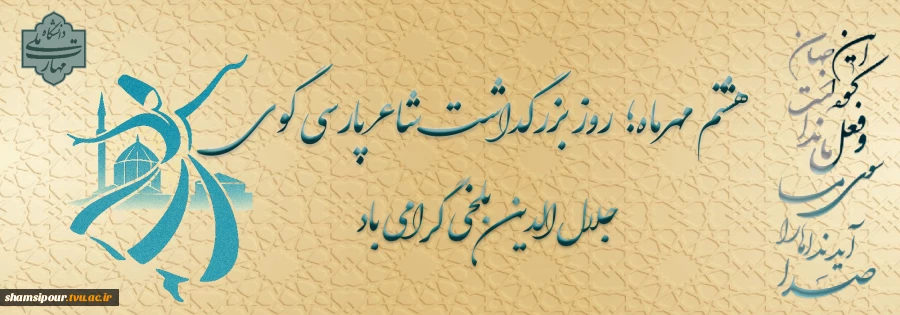 دانشگاه
ملی
مهارت
هشتم مهرماه؛ روز بزرگداشت شاعر پارسی گوی
جلال الدین بلخی گرامی باد
این
جهان
کوه
است
و فعل
ما ندا
سوی ما
آید نداها را
صدا
shamsipour.tvu.ac.ir